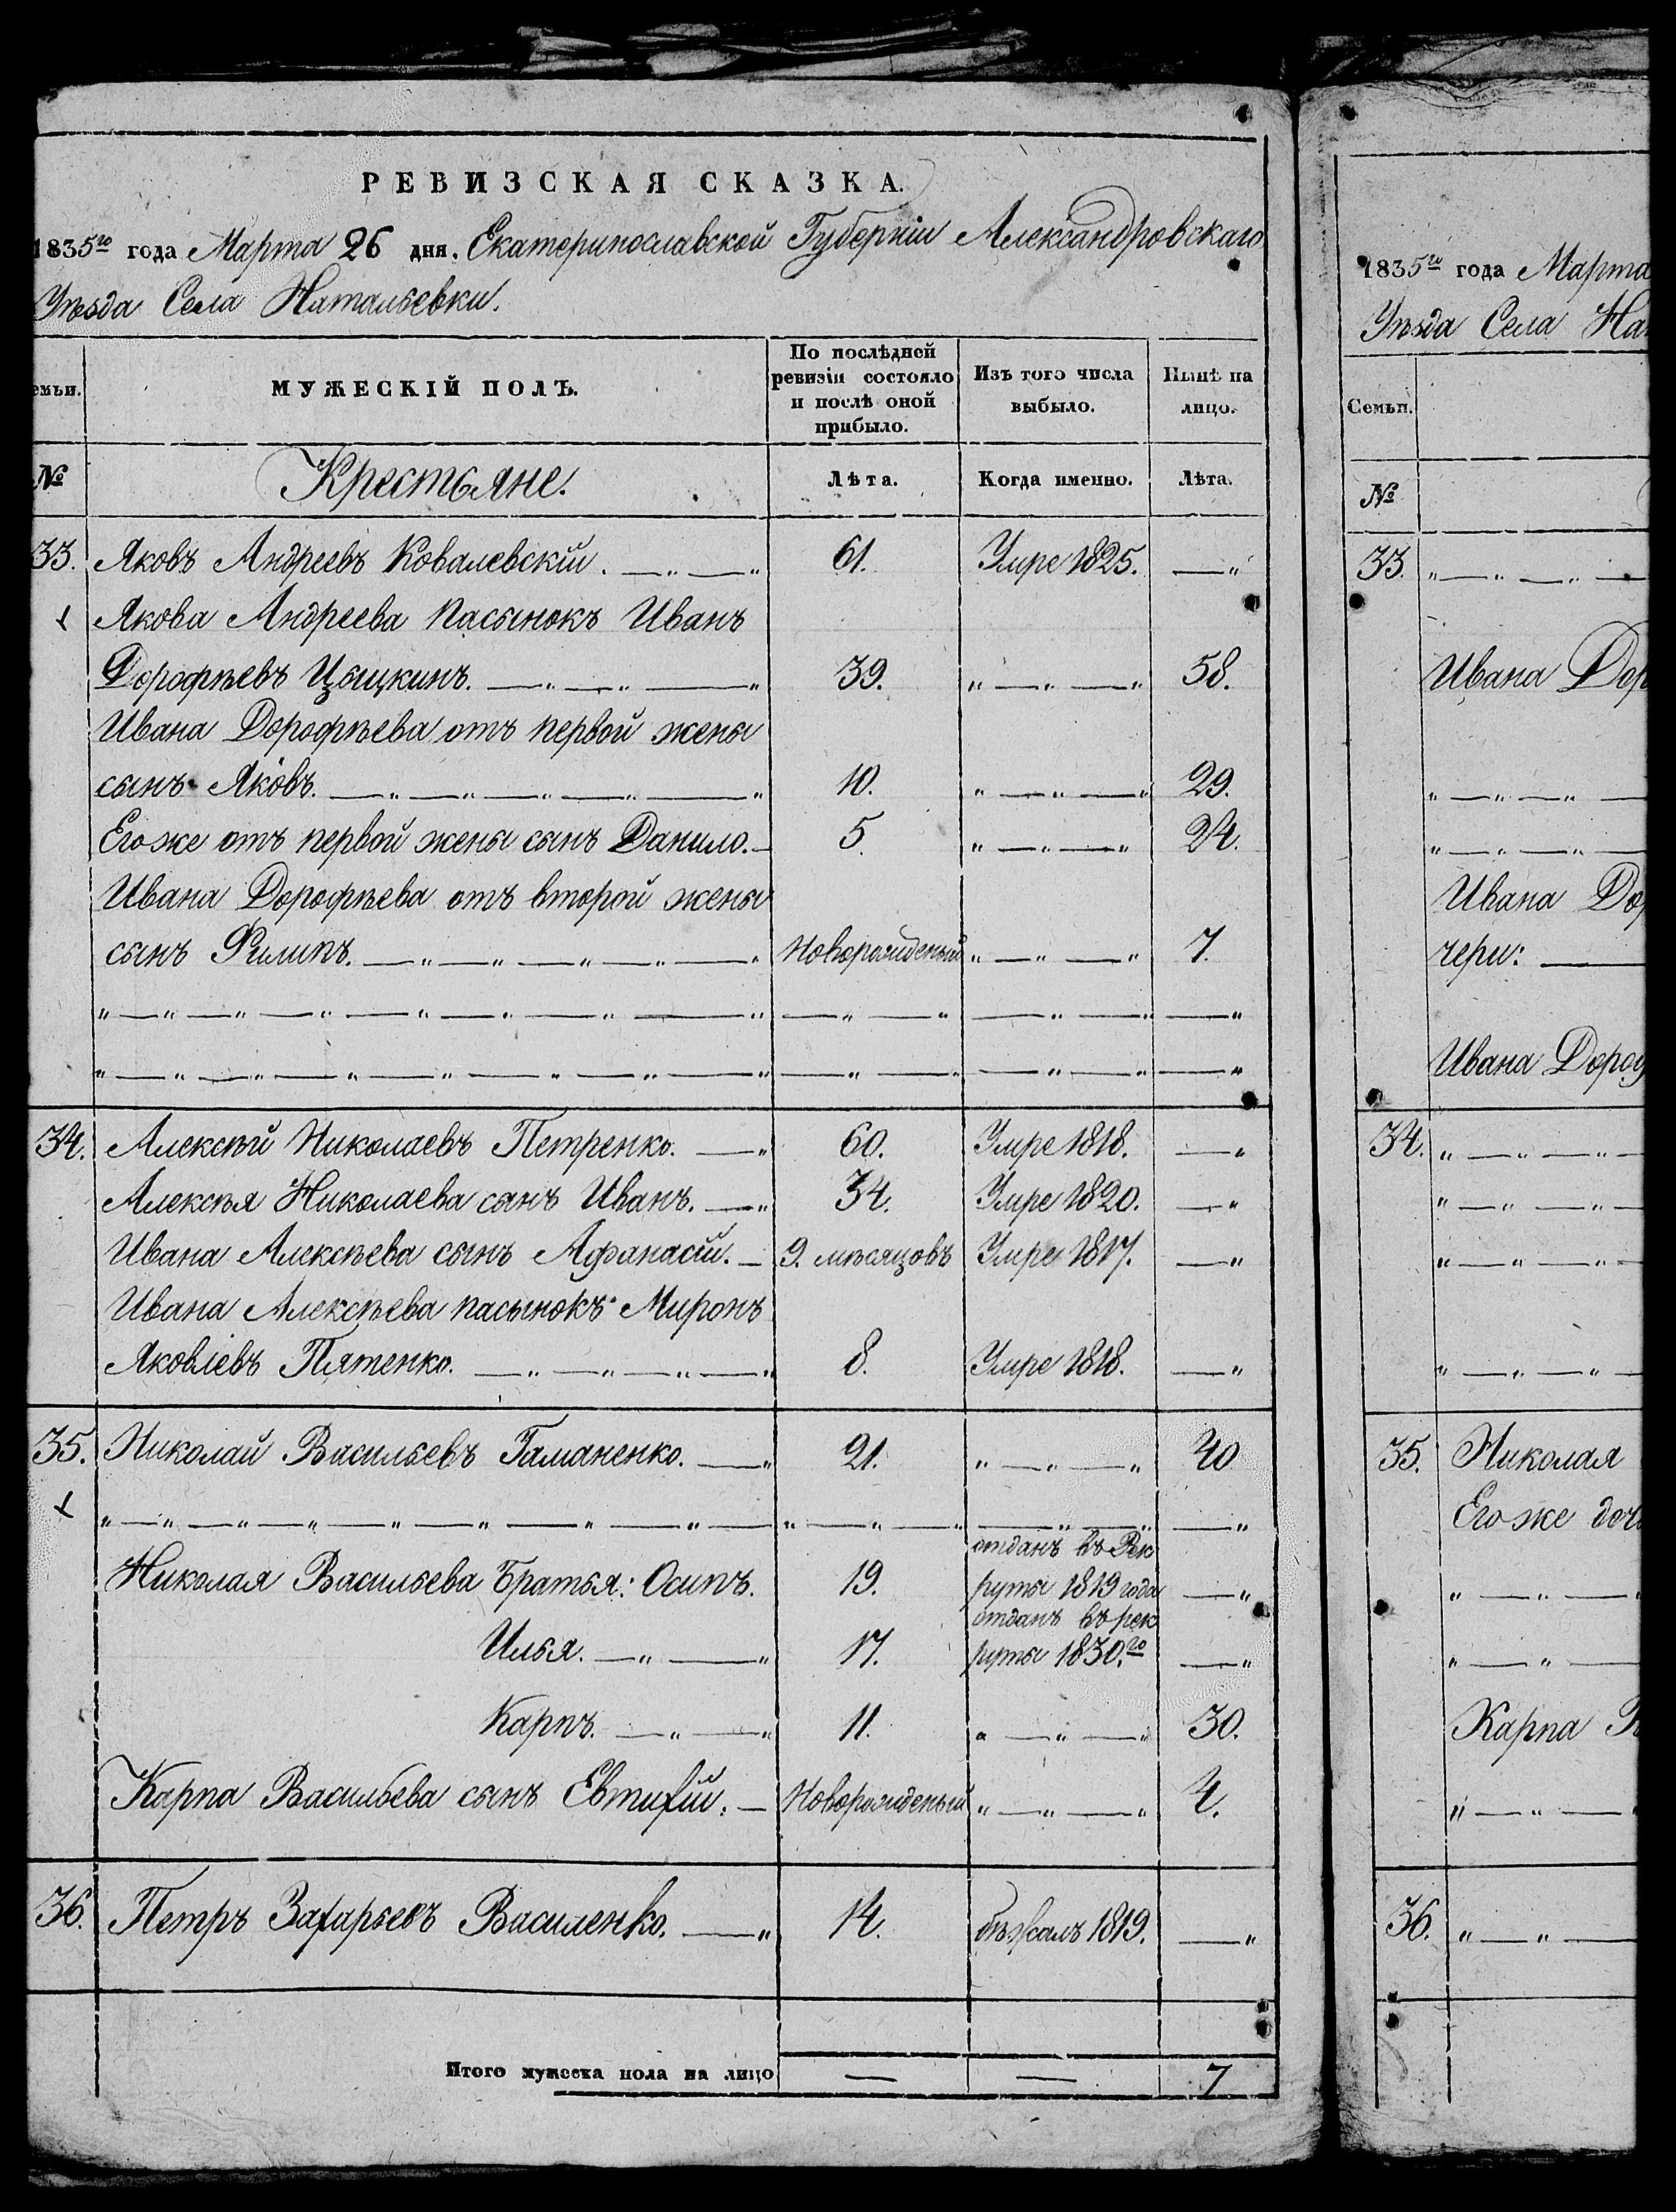 РЕВИЗСКАЯ СКАЗКА.
1835го года Марта 26 дня. Екатеринославской Губерніи Александровскаго
Уѣзда Села Натальевки.
емьи. МУЖЕСКІЙ ПОЛЪ. По послѣдней ревизіи состояло и послѣ оной прибыло. Изъ того числа выбыло. Нынѣ на лицо.
№ Крестьяне. Лѣта. Когда именно. Лѣта.
33. Яковъ Андреевъ Ковалевскій. 61. Умре 1825.
Якова Андреева пасынокъ Иванъ
Дорофѣевъ Цыцкинъ. 39. 58.
Ивана Дорофѣева отъ первой жены
сынъ Яковъ. 10. 29.
Его же отъ первой жены сынъ Данило. 5. 24.
Ивана Дорофѣева отъ второй жены
сынъ Филипъ. Новорожденый 7.
34. Алексѣй Николаевъ Петренко. 60. Умре 1818.
Алексѣя Николаева сынъ Иванъ. 34. Умре 1820.
Ивана Алексѣева сынъ Афанасій. 9. мѣсяцовъ Умре 1817.
Ивана Алексѣева пасынокъ Миронъ
Яковлевъ Пятенко. 8. Умре 1818.
35. Николай Васильевъ Гаманенко. 21. 40
отданъ въ Рек
Николая Васильева братья: Осипъ. 19. руты 1819 года
отданъ въ рек
Илья. 17. руты 1830.го
Карпъ. 11. 30.
Карпа Васильева сынъ Евтихій. Новорожденый 4.
36. Петръ Захарьевъ Василенко. 14. бѣжалъ 1819.
Итого мужеска пола на лицо 7
1835го года Марта
Уѣзда Села На
Семьи.
№
33.
Ивана Дор
Ивана Дор
чери:
Ивана Дороф
34.
35. Николая
Его же доч
Карпа
36.